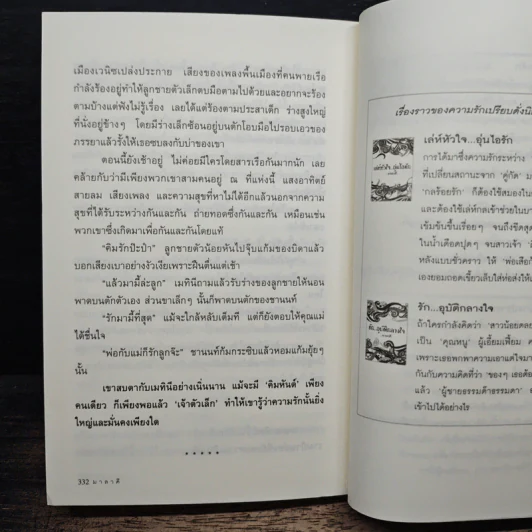 เมืองเวนิซเปล่งประกาย เสียงของเพลงพื้นเมืองที่คนพายเรือ
กำลังร้องอยู่ทำให้ลูกชายตัวเล็กตบมือตามไปด้วยและอยากจะร้อง
ตามบ้างแต่ฟังไม่รู้เรื่อง เลยได้แต่ร้องตามประสาเด็ก ร่างสูงใหญ่
ที่นั่งอยู่ข้างๆ โดยมีร่างเล็กซ้อนอยู่บนตักโอบมือไปรอบเอวของ
ภรรยาแล้วรั้งให้เธอซบลงกับบ่าของเขา
ตอนนี้ยังเช้าอยู่ ไม่ค่อยมีใครโดยสารเรือกันมากนัก เลย
คล้ายกับว่ามีเพียงพวกเขาสามคนอยู่ ณ ที่แห่งนี้ แสงอาทิตย์
สายลม เสียงเพลง และความสุขที่หาไม่ได้อีกแล้วนอกจากความ
สุขที่ได้รับระหว่างกันและกัน ถ่ายทอดซึ่งกันและกัน เหมือนเช่น
พวกเขาซึ่งเกิดมาเพื่อกันและกันโดยแท้
“คิมรักป๊ะป๋า” ลูกชายตัวน้อยหันไปจุ๊บแก้มของบิดาแล้ว
บอกเสียงเบาอย่างง่วงเงียเพราะฝืนตื่นแต่เช้า
“แล้วมามี้ล่ะลูก” เมทินีถามแล้วรับร่างของลูกชายให้นอน
พาดบนตักตัวเอง ส่วนขาเล็กๆ นั้นก็พาดบนตักของชานนท์
“รักมามี้ที่สุด” แม้จะใกล้หลับเต็มที แต่ก็ยังตอบให้คุณแม่
ได้ชื่นใจ
“พ่อกับแม่ก็รักลูกจ๊ะ” ชานนท์ก้มกระซิบแล้วหอมแก้มยุ้ยๆ
นั้น
เขาสบตากับเมทินีอย่างเนิ่นนาน แม้จะมี ‘คิมหันต์’ เพียง
คนเดียว ก็เพียงพอแล้ว ‘เจ้าตัวเล็ก’ ทำให้เขารู้ว่าความรักนั้นยิ่ง
ใหญ่และมั่นคงเพียงใด
* * * * *
332 มาลาตี
เรื่องราวของความรักเปรียบดั่ง
เล่ห์หัวใจ...อุ่นไอรัก
การได้มาซึ่งความรักระหว่าง
ที่เปลี่ยนสถานะจาก ‘คู่กัด’
‘กลร้อยรัก’ ก็ต้องใช้สมอง
และต้องใช้เล่ห์กลเข้าช่วยใน
เข้มข้นขึ้นเรื่อยๆ จนถึงขีดสุด
ในน้ำเดือดปุดๆ จนสาวเจ้า
หลังแบบชั่วคราว ให้ ‘พ่อเสือ
เองยอมถอดเขี้ยวเล็บใส่ห่อส่งให้
รัก...อุบัติกลางใจ
ถ้าใครกำลังคิดว่า ‘สาวน้อย
เป็น ‘คุณหนู’ ผู้เอี้ยมเฟี้ยม
เพราะเธอพกพาความเอาแต่ใจ
กันกับความคิดที่ว่า ‘ของๆ เธอ
แล้ว ‘ผู้ชายธรรมด๊าธรรมดา’
เข้าไปได้อย่างไร